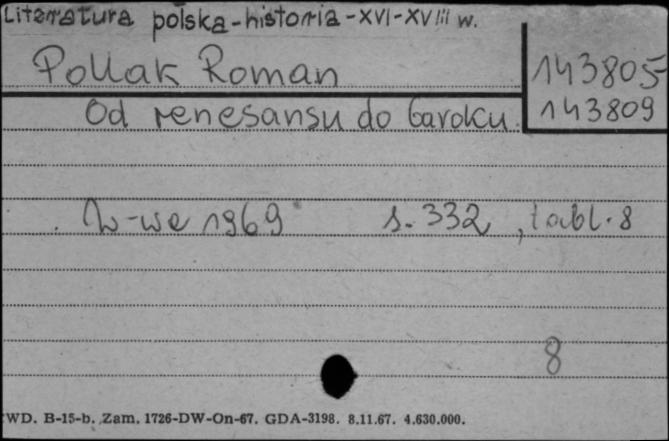 Literatura polska-historia-XVI-XVIII w.
Pollak Roman
143805
143809
Od renesansu do baroku.
W-wa 1969 s. 332, tabl. 8
8
WD. B-15-b. Zam. 1726-DW-On-67. GDA-3198. 8.11.67. 4.630.000.